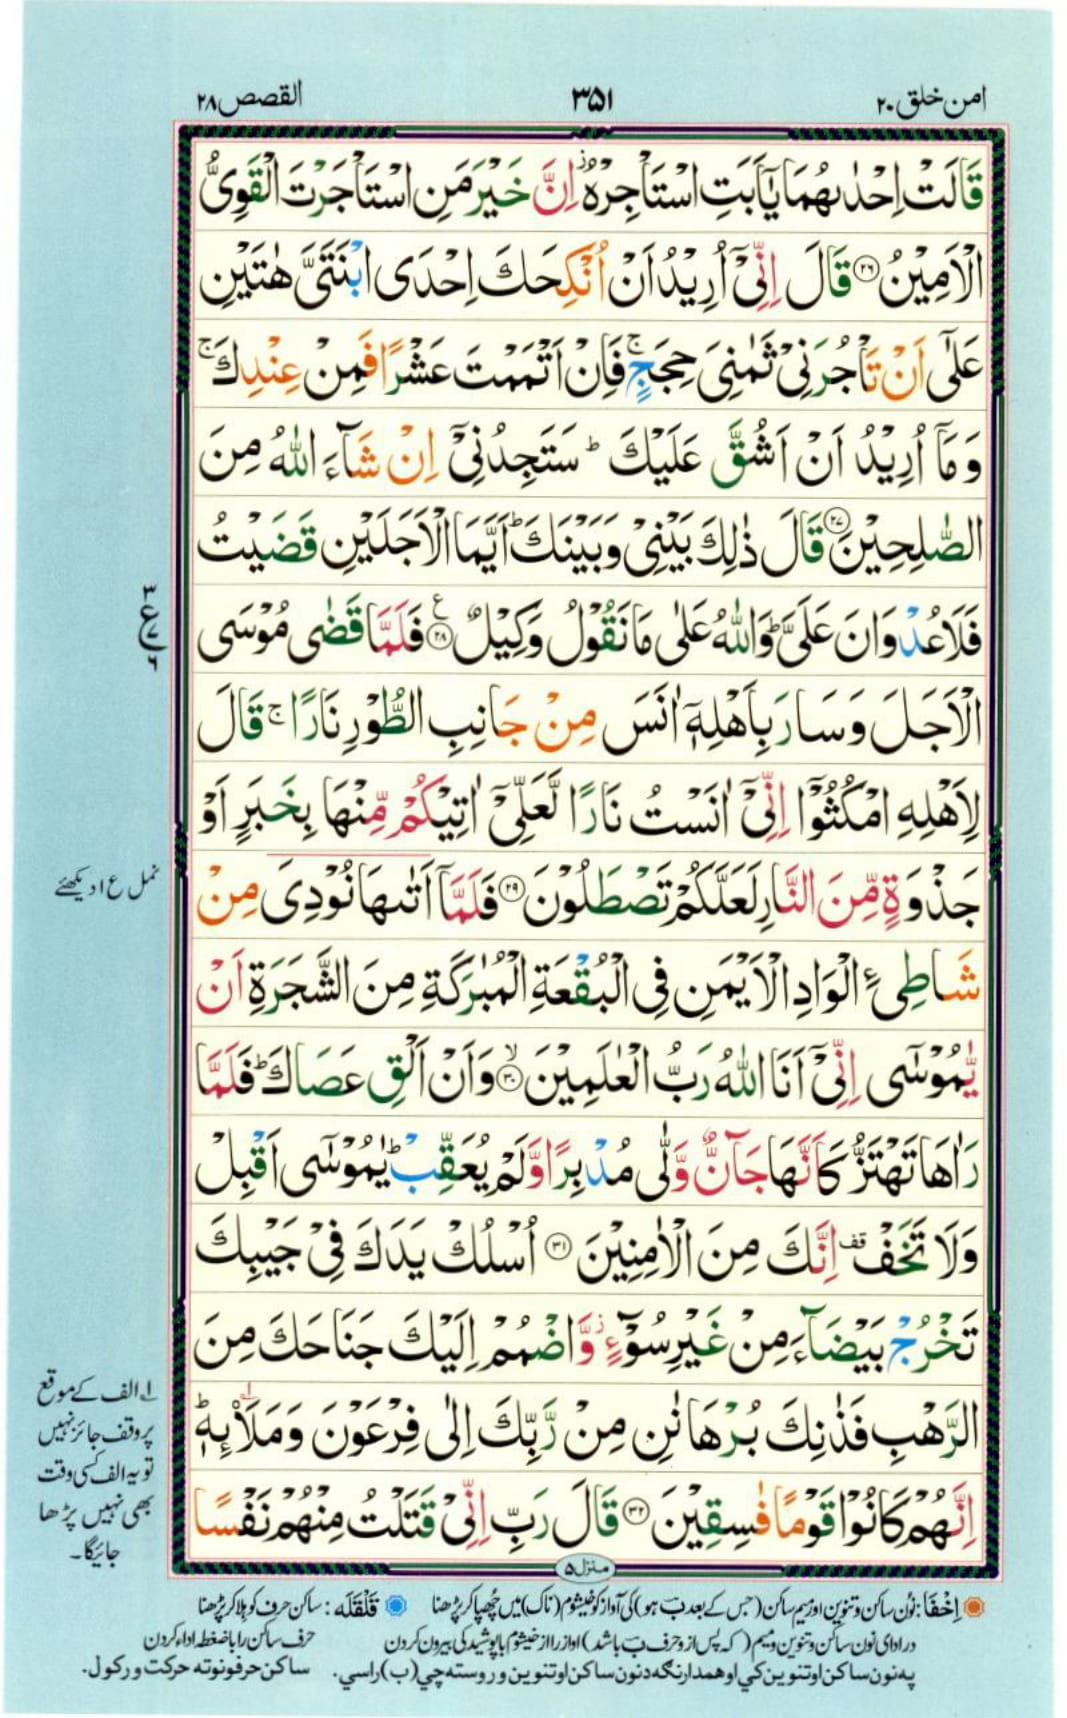 امن خلق ۲۰
۳۵۱
القصص ۲۸
قَالَتْ اِحْدٰىهُمَا يٰٓاَبَتِ اسْتَاْجِرْهُ ز اِنَّ خَيْرَ مَنِ اسْتَاْجَرْتَ الْقَوِيُّ
الْاَمِيْنُ ۲۶ قَالَ اِنِّىْٓ اُرِيْدُ اَنْ اُنْكِحَكَ اِحْدَى ابْنَتَىَّ هٰتَيْنِ
عَلٰٓى اَنْ تَاْجُرَنِىْ ثَمٰنِىَ حِجَجٍ ۚ فَاِنْ اَتْمَمْتَ عَشْرًا فَمِنْ عِنْدِكَ ۚ
وَمَآ اُرِيْدُ اَنْ اَشُقَّ عَلَيْكَ ؕ سَتَجِدُنِىْٓ اِنْ شَآءَ اللّٰهُ مِنَ
الصّٰلِحِيْنَ ۲۷ قَالَ ذٰلِكَ بَيْنِىْ وَبَيْنَكَ ؕ اَيَّمَا الْاَجَلَيْنِ قَضَيْتُ
فَلَا عُدْوَانَ عَلَىَّ ؕ وَاللّٰهُ عَلٰى مَا نَقُوْلُ وَكِيْلٌ ۲۸ ع فَلَمَّا قَضٰى مُوْسَى
الْاَجَلَ وَسَارَ بِاَهْلِهٖٓ اٰنَسَ مِنْ جَانِبِ الطُّوْرِ نَارًا ۚ قَالَ
لِاَهْلِهِ امْكُثُوْٓا اِنِّىْٓ اٰنَسْتُ نَارًا لَّعَلِّىْٓ اٰتِيْكُمْ مِّنْهَا بِخَبَرٍ اَوْ
جَذْوَةٍ مِّنَ النَّارِ لَعَلَّكُمْ تَصْطَلُوْنَ ۲۹ فَلَمَّآ اَتٰىهَا نُوْدِىَ مِنْ
شَاطِىءِ الْوَادِ الْاَيْمَنِ فِى الْبُقْعَةِ الْمُبٰرَكَةِ مِنَ الشَّجَرَةِ اَنْ
يّٰمُوْسٰٓى اِنِّىْٓ اَنَا اللّٰهُ رَبُّ الْعٰلَمِيْنَ ۳۰ ۙ وَاَنْ اَلْقِ عَصَاكَ ؕ فَلَمَّا
رَاٰهَا تَهْتَزُّ كَاَنَّهَا جَآنٌّ وَّلّٰى مُدْبِرًا وَّلَمْ يُعَقِّبْ ؕ يٰمُوْسٰٓى اَقْبِلْ
وَلَا تَخَفْ قف اِنَّكَ مِنَ الْاٰمِنِيْنَ ۳۱ اُسْلُكْ يَدَكَ فِىْ جَيْبِكَ
تَخْرُجْ بَيْضَآءَ مِنْ غَيْرِ سُوْٓءٍ ز وَّاضْمُمْ اِلَيْكَ جَنَاحَكَ مِنَ
الرَّهْبِ فَذٰنِكَ بُرْهَانٰنِ مِنْ رَّبِّكَ اِلٰى فِرْعَوْنَ وَمَلَا۟ئِهٖ ؕ
اِنَّهُمْ كَانُوْا قَوْمًا فٰسِقِيْنَ ۳۲ قَالَ رَبِّ اِنِّىْ قَتَلْتُ مِنْهُمْ نَفْسًا
منزل ۵
۳
ع
۷
۶
نمل ع ا دیکھئے
لے الف کے موقع
پر وقف جائز نہیں
تو یہ الف کسی وقت
بھی نہیں پڑھا
جائیگا۔
اِخْفَا: نُون ساکن و تنوین اور میم ساکن (جس کے بعد بَ ہو) کی آواز کو خَیشُوم (ناک) میں چھپا کر پڑھنا قَلْقَلَه: ساکن حرف کو ہلا کر پڑھنا
در ادای نون ساکن و تنوین و میم (که پس از و حرف بَ باشد) اواز را از خیشوم با پوشیدگی بیرون کردن حرف ساکن را با ضغط ادا کردن
په نون ساکن او تنوین کي او همدارنګه د نون ساکن او تنوین وروسته چي (ب) راسي. ساکن حرفونو ته حرکت ورکول.